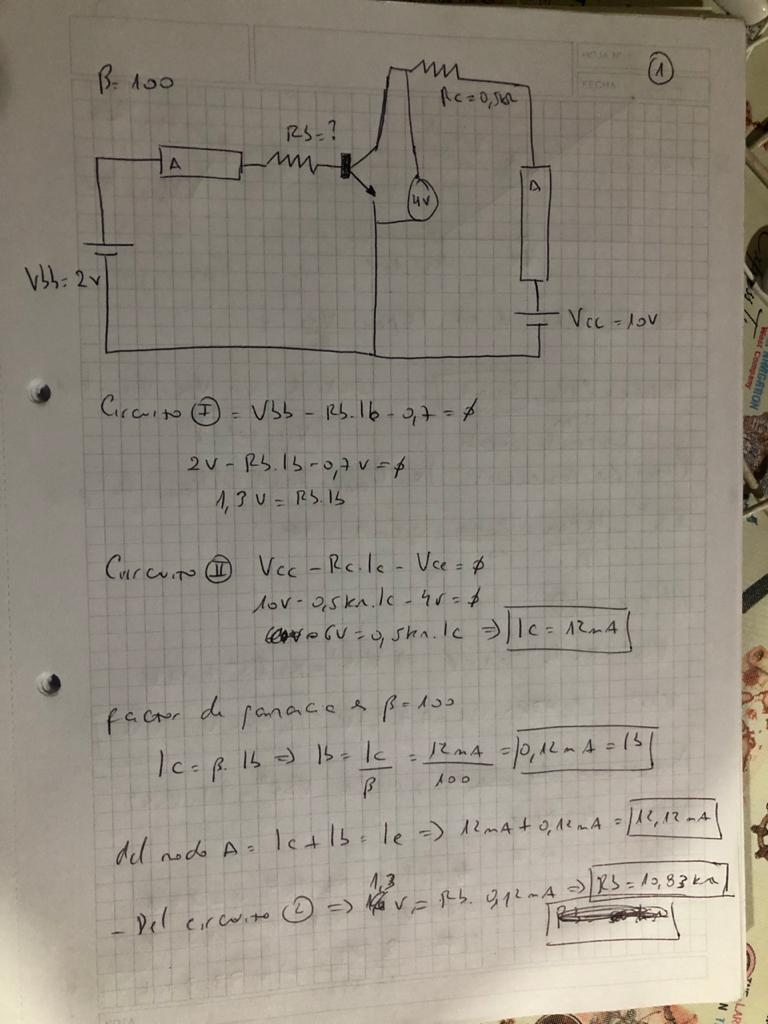 HOJA Nº
FECHA
①
β= 100
Rc=0,5kΩ
Rb=?
A
A
4V
Vbb=2v
Vcc=10V
Circuito Ⅰ = Vbb - Rb.Ib - 0,7 = ϕ
2v - Rb.Ib - 0,7v = ϕ
1,3v = Rb.Ib
Circuito Ⅱ Vcc - Rc.Ic - Vce = ϕ
10v - 0,5kΩ.Ic - 4v = ϕ
6v = 0,5kΩ.Ic => Ic = 12mA
factor de ganacia es β=100
Ic = β.Ib => Ib = Ic/β = 12mA/100 = 0,12mA = Ib
del nodo A = Ic + Ib = Ie => 12mA + 0,12mA = 12,12mA
- Del circuito ② => 1,3 v = Rb. 0,12mA => Rb=10,83kΩ
NIMIGATION
West Company
THE LAR